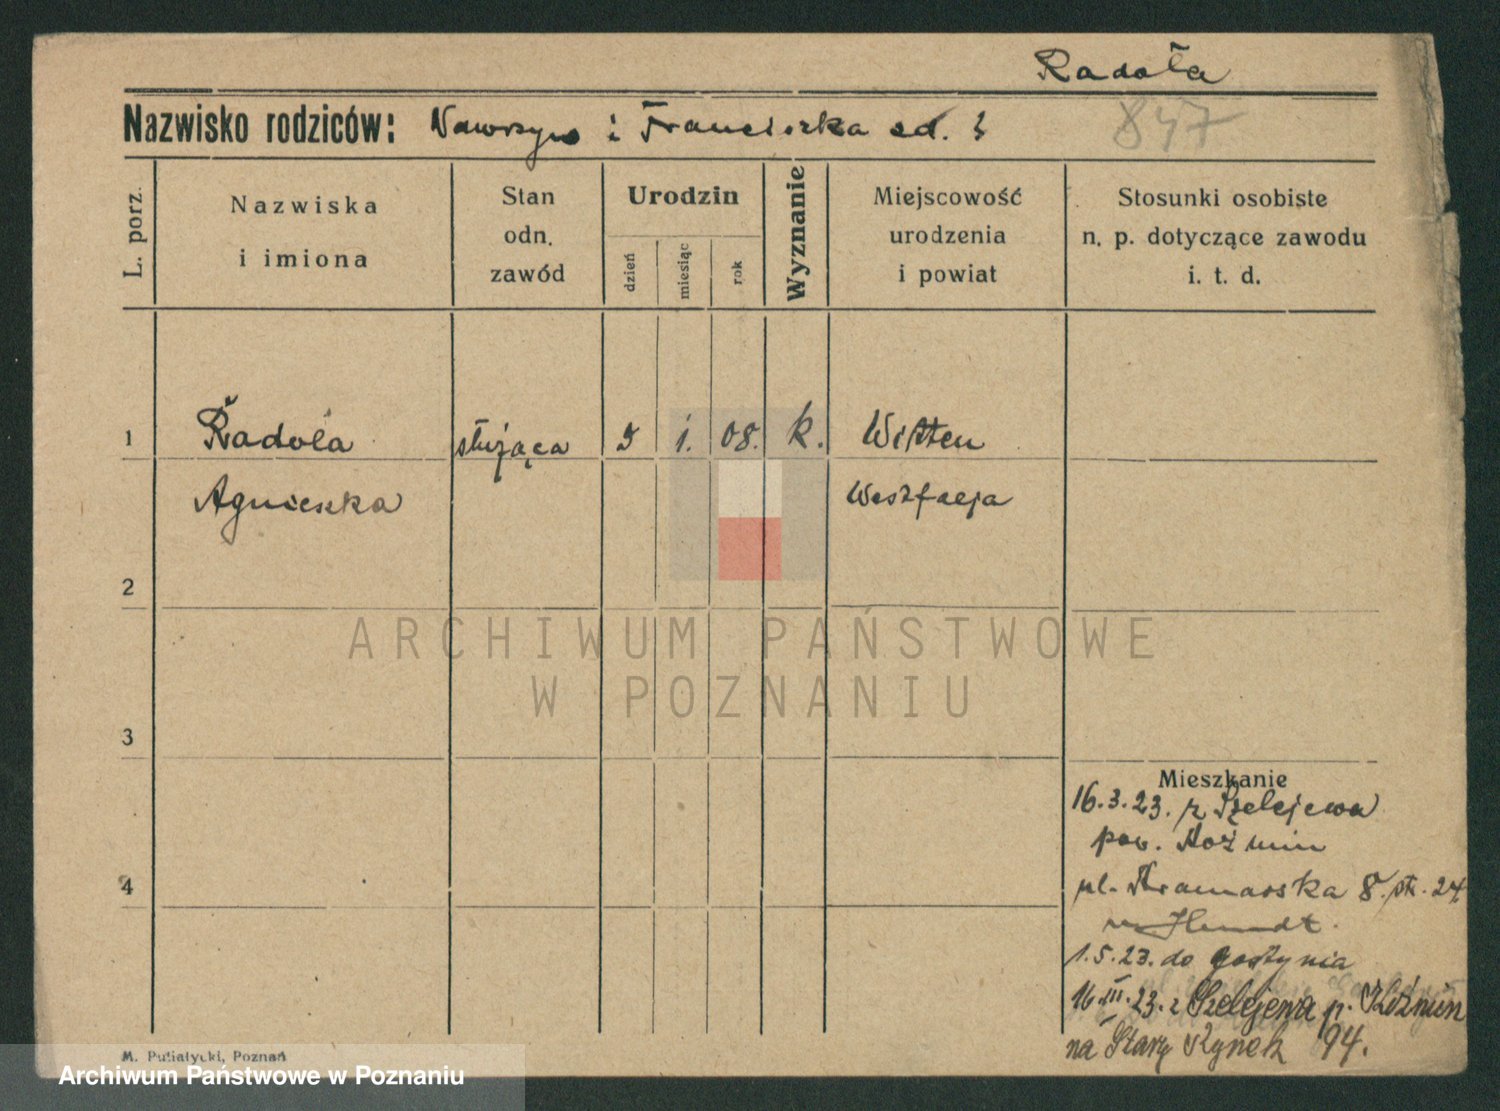 Radoła
Nazwisko rodziców: Wawrzyn i Franciszka
847
L. porz.
Nazwiska
i imiona
Stan
odn.
zawód
Urodzin
dzień
miesiąc
rok
Wyznanie
Miejscowość
urodzenia
i powiat
Stosunki osobiste
n. p. dotyczące zawodu
i. t. d.
1 Radoła służąca 1. 08. k. Witten
Agnieszka Westfalja
2
ARCHIWUM PAŃSTWOWE
W POZNANIU
3
Mieszkanie
16.3.23. z Szelejewa
pow. Koźmin
4
ul. Kramarska 8. ptr. 24
1.5.23. do Gostynia
16.III.23. z Szelejewa p. Koźmin
na Stary Rynek 94.
M. Putiatycki, Poznań
Archiwum Państwowe w Poznaniu